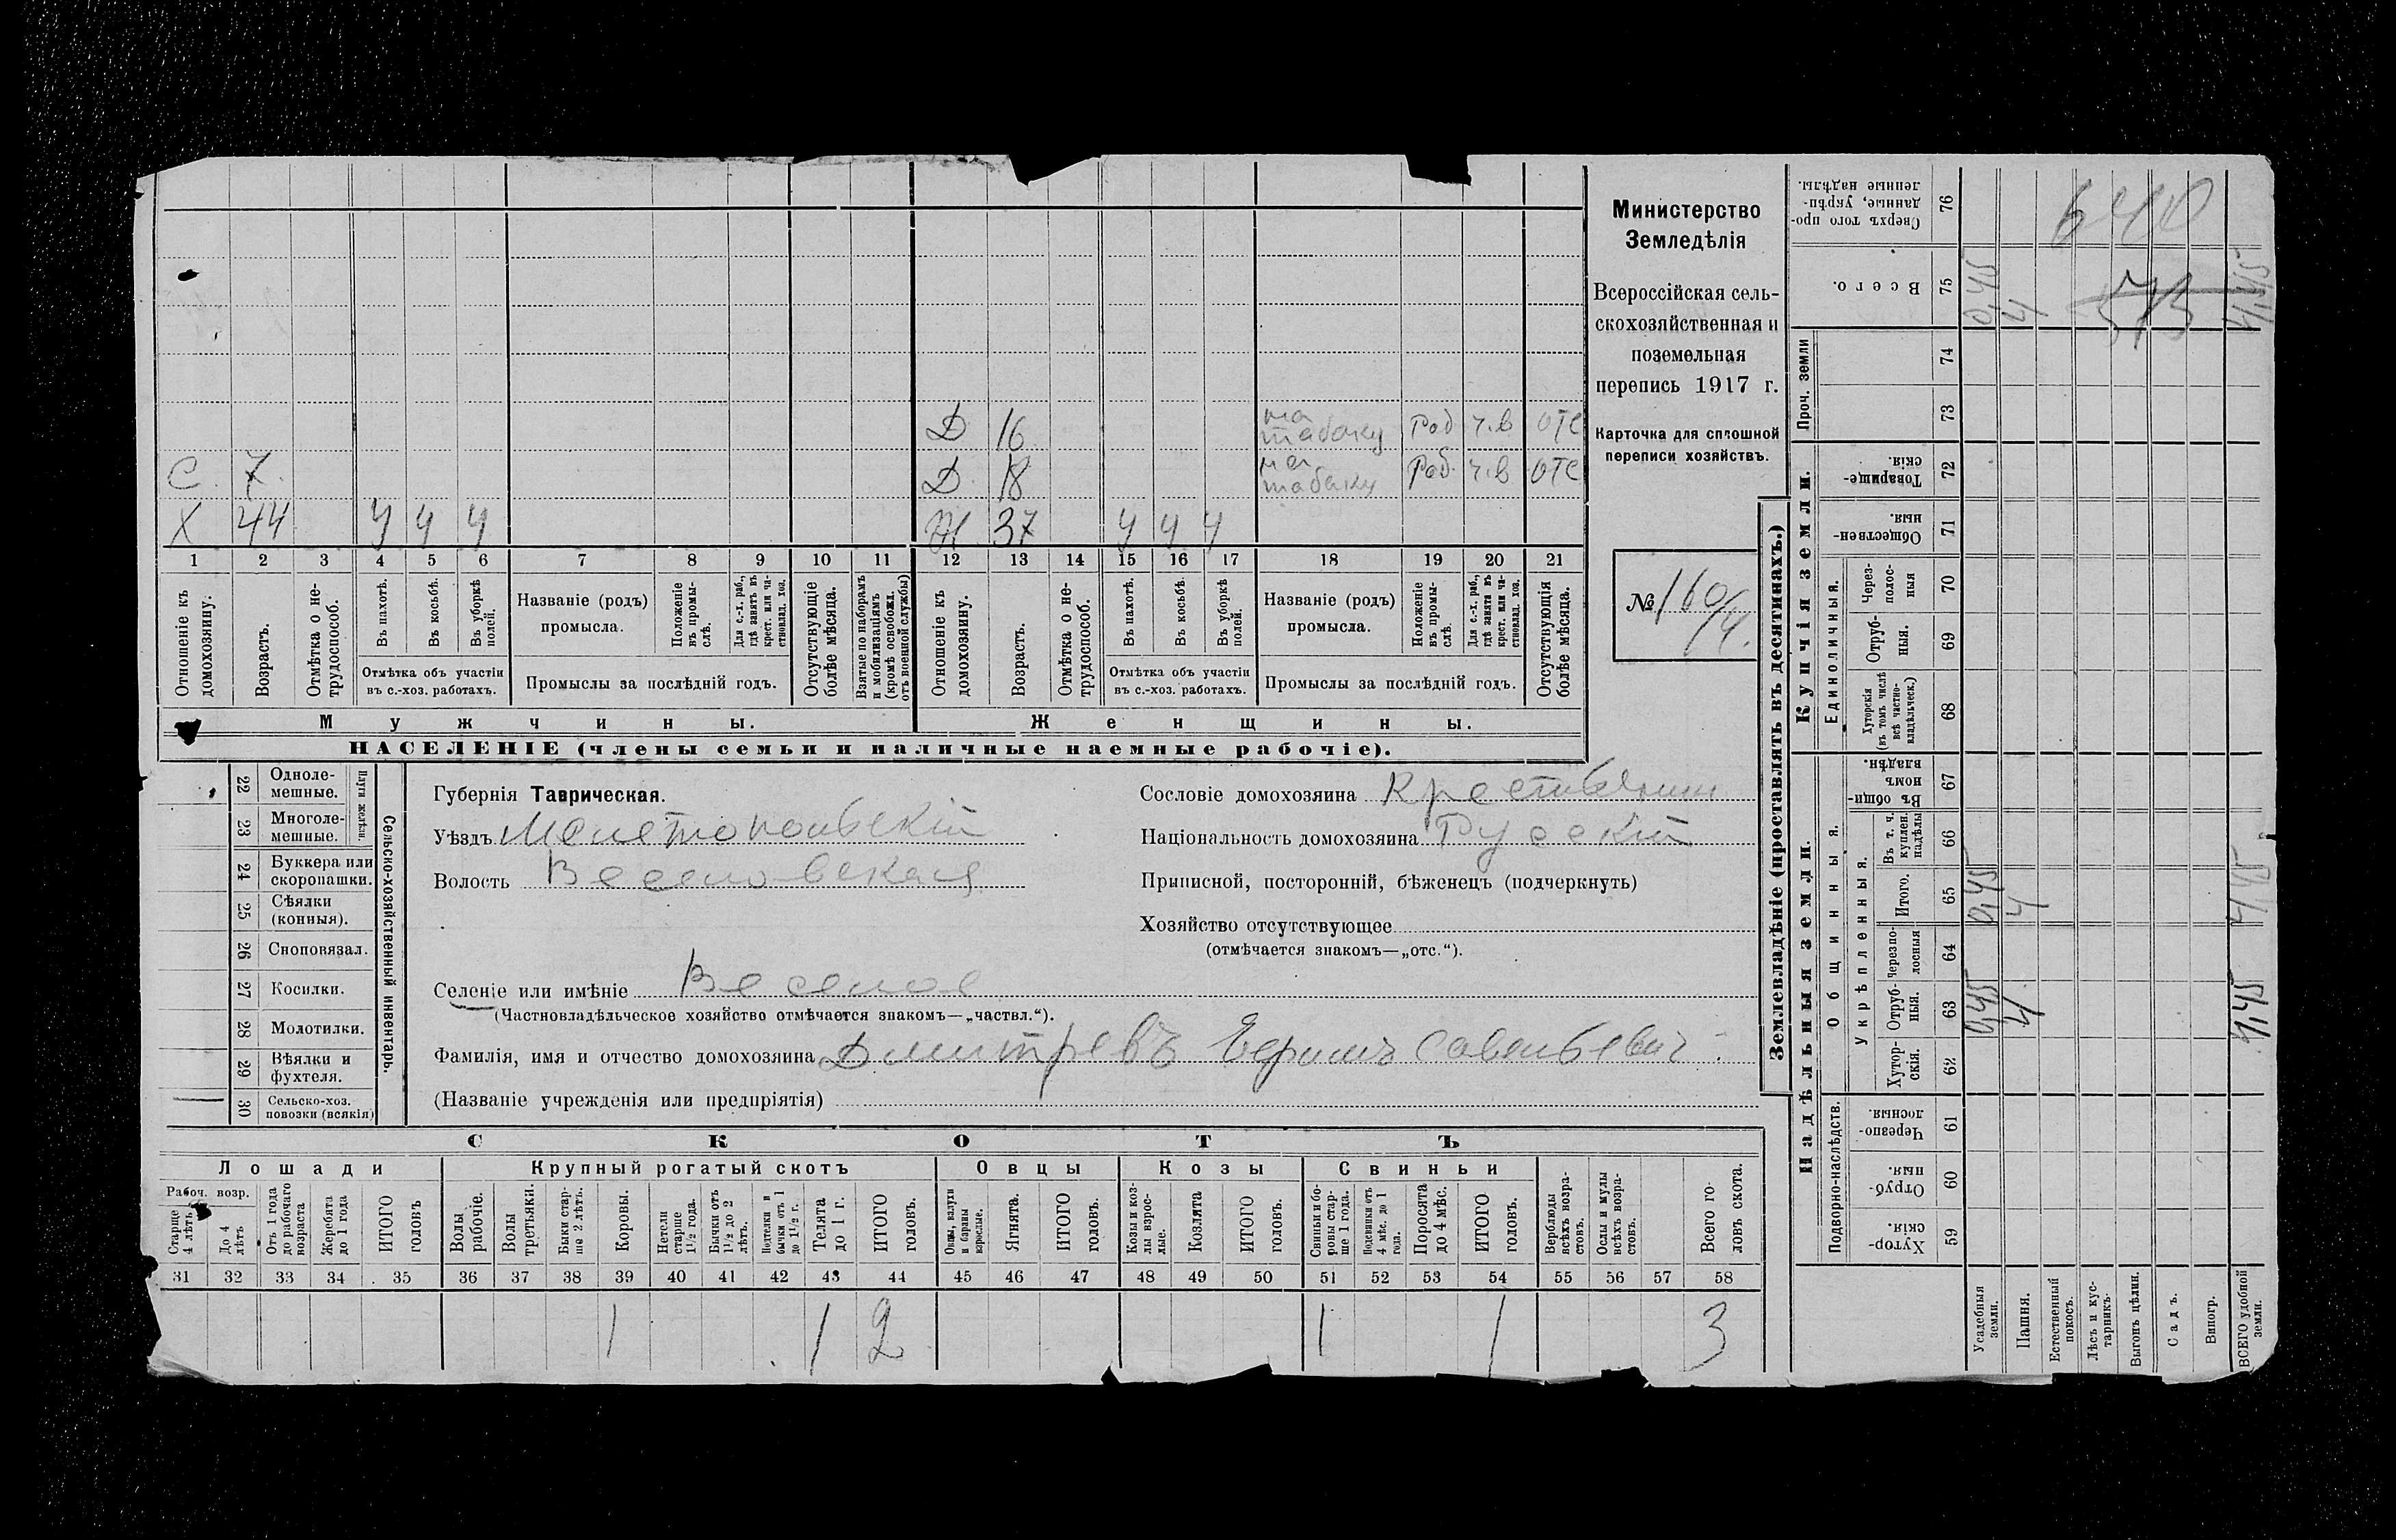 Министерство
Земледѣлія
Всероссійская сель-
скохозяйственная и
поземельная
перепись 1917 г.
Карточка для сплошной
переписи хозяйствъ.
№ 160/14.
Д 16 на табаку Раб ч.в отс
С. 7. Д 18 на табаку Раб. ч.в отс
Х 44 ч ч ч Ж 37 ч ч ч
1 2 3 4 5 6 7 8 9 10 11 12 13 14 15 16 17 18 19 20 21
Отношеніе къ домохозяину.
Возрастъ.
Отмѣтка о не-трудоспособ.
Въ пахотѣ.
Въ косьбѣ.
Въ уборкѣ полей.
Отмѣтка объ участіи въ с.-хоз. работахъ.
Названіе (родъ) промысла.
Положеніе въ промы-слѣ.
Для с.-х. раб., гдѣ занятъ въ крест. или ча-стновлад. хоз.
Промыслы за послѣдній годъ.
Отсутствующіе болѣе мѣсяца.
Взятые по наборамъ и мобилизаціямъ (кромѣ освобожд. отъ военной службы)
Отношеніе къ домохозяину.
Возрастъ.
Отмѣтка о не-трудоспособ.
Въ пахотѣ.
Въ косьбѣ.
Въ уборкѣ полей.
Отмѣтка объ участіи въ с.-хоз. работахъ.
Названіе (родъ) промысла.
Положеніе въ промы-слѣ.
Для с.-х. раб., гдѣ занята въ крест. или ча-стновлад. хоз.
Промыслы за послѣдній годъ.
Отсутствующія болѣе мѣсяца.
Мужчины. Женщины.
НАСЕЛЕНІЕ (члены семьи и наличные наемные рабочіе).
22 Одноле-мешные.
23 Многоле-мешные.
Плуги желѣзн.
24 Буккера или скоропашки.
25 Сѣялки (конныя).
26 Сноповязал.
27 Косилки.
28 Молотилки.
29 Вѣялки и фухтеля.
30 Сельско-хоз. повозки (всякія)
Сельско-хозяйственный инвентарь.
Губернія Таврическая.
Уѣздъ Мелетопольскій
Волость Веселовская
Селеніе или имѣніе Веселое
(Частновладѣльческое хозяйство отмѣчается знакомъ—„частвл.“).
Фамилія, имя и отчество домохозяина Дмитревъ Савельевич
(Названіе учрежденія или предпріятія)
Сословіе домохозяина Крестьянин
Національность домохозяина Русскій
Приписной, посторонній, бѣженецъ (подчеркнуть)
Хозяйство отсутствующее
(отмѣчается знакомъ—„отс.“).
СКОТЪ
Лошади Крупный рогатый скотъ Овцы Козы Свиньи
Рабоч. возр.
Старше 4 лѣтъ
До 4 лѣтъ
Отъ 1 года до рабочаго возраста
Жеребята до 1 года
ИТОГО головъ
Волы рабочіе.
Волы третьяки.
Быки стар-ше 2 лѣтъ.
Коровы.
Нетели старше 1½ года.
Бычки отъ 1½ до 2 лѣтъ.
Подтелки и бычки отъ 1 до 1½ г.
Телята до 1 г.
ИТОГО головъ.
Овцы, валухи и бараны взрослые.
Ягнята.
ИТОГО головъ.
Козы и коз-лы взрос-лые.
Козлята
ИТОГО головъ.
Свиньи и бо-ровы стар-ше 1 года.
Подсвинки отъ 4 мѣс. до 1 года.
Поросята до 4 мѣс.
ИТОГО головъ.
Верблюды всѣхъ возра-стовъ.
Ослы и мулы всѣхъ возра-стовъ.
Всего го-ловъ скота.
31 32 33 34 35 36 37 38 39 40 41 42 43 44 45 46 47 48 49 50 51 52 53 54 55 56 57 58
1 1 2 1 1 3
Землевладѣніе (проставлять въ десятинахъ.)
Купчія земли.
Надѣльныя земли.
Сверхъ того про-данные, укрѣп-ленные надѣлы. 76 640
Всего. 75 0,45 4 573 4,45
Проч. земли 74
73
Товарище-скія. 72
Обществен-ныя. 71
Единоличныя.
Через-полос-ныя 70
Отруб-ныя. 69
Хуторскія (въ томъ числѣ всѣ частно-владѣльческ.) 68
Въ общи-номъ владѣн. 67
Общинныя.
Укрѣпленныя.
Въ т. ч. куплен. надѣлы 66
Итого. 65 0,45 4 4,45
Черезпо-лосныя 64
Отруб-ныя. 63 0,45 4 4,45
Хутор-скія. 62
Подворно-наслѣдств.
Черезпо-лосныя. 61
Отруб-ныя. 60
Хутор-скія. 59
Усадебныя земли.
Пашня.
Естественный покосъ.
Лѣсъ и кус-тарникъ.
Выгонъ цѣлин.
Садъ.
Виногр.
ВСЕГО удобной земли.